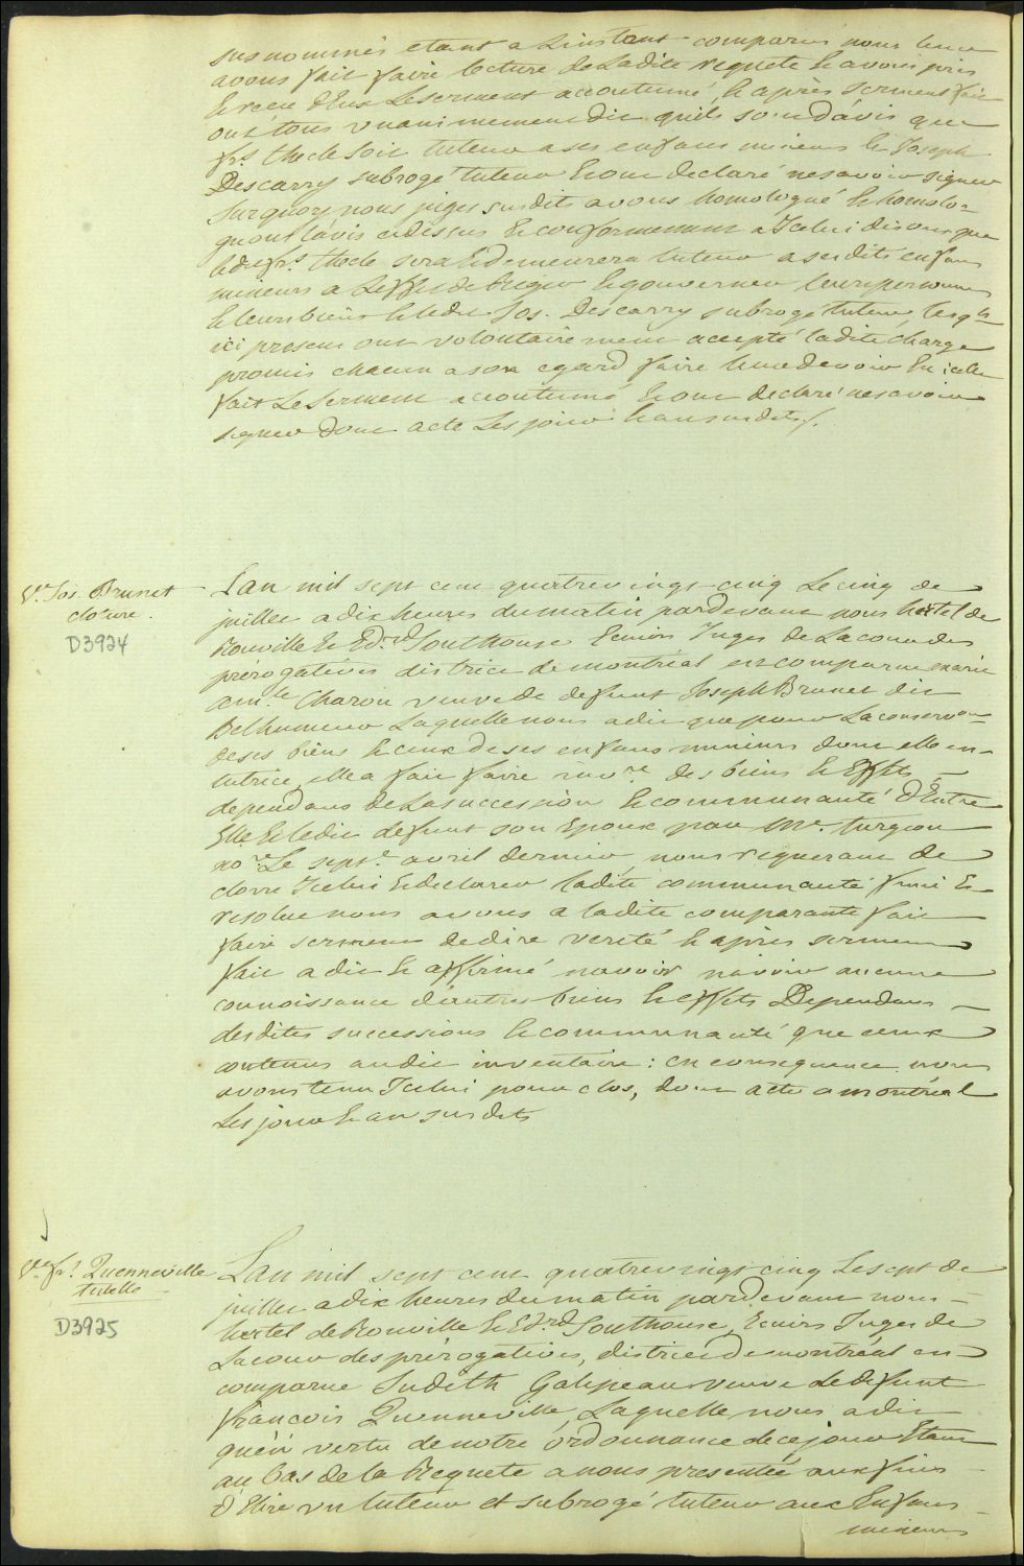 susnommés etant a Linstant comparus nous leur
avons fait faire lecture de Ladite requete & avons pris
& receu d'Eux Le serment accoutumé, & après serment fait
ont tous vnanimement dit quils sont d'avis que
frs. thecle soit tuteur a ses enfans mineurs & Joseph
Descarry subrogé tuteur & ont declaré ne savoir signer
sur quoy nous juges susdits avons homologué & homolo-
guons l'avis cidessus & conformement a Icelui disons que
ledit frs. thecle sera & demeurera tuteur a sesdits enfans
mineurs a Leffet de Regir & gouverner leurs personnes
& leurs biens & ledit Jos. Descarry subrogé tuteur, lesqls
ici presens ont volontairement accepté ladite charge
promis chacun a son egard faire leur devoir En icelle
fait Le serment accoutumé & ont declaré ne savoir
signer dont acte Les jour & an susdits/.
Ve. Jos. Brunet
cloture.
D3924
L'an mil sept cent quatrevingt cinq Le cinq de
juillet a dix heures du matin pardevant nous hertel de
Rouville & Edrd. Southouse Ecuiers Juges de La cour des
prérogatives district de montréal est comparue marie
amle. Charon veuve de defunt Joseph Brunet dit
Belhumeur Laquelle nous a dit que pour La conservon
de ses biens & ceux de ses enfans mineurs dont elle est
tutrice, elle a fait faire invre. des biens & Effets
dependans de La succession & communauté d'Entre
Elle & ledit defunt son Epoux par Mr. turgeon
nore. Le sept. avril dernier nous requerant de
clorre Icelui & declarer ladite communauté finie &
resolue nous avons a ladite comparante fait
faire serment de dire verité & après serment
fait a dit & affirmé n'avoir n'avoir aucune
connoissance d'autres biens & effets Dependans
desdites successions & communauté que ceux
contenus audit inventaire : en consequence nous
avons tenu Icelui pour clos, dont acte a montréal
Les jour & an susdits
Ve. fs. Quenneville
tutelle
D3925
L'an mil sept cent quatrevingt cinq Le sept de
juillet a dix heures du matin pardevant nous
hertel de Rouville & Edrd. Southouse, Ecuiers Juges de
La cour des prérogatives, district de montréal est
comparue Judith Galipeau veuve de defunt
François Quenneville, Laquelle nous a dit
qu'en vertu de notre ordonnance de ce jour Etant
au bas de la Requete a nous presentée aux fins
d'Elire vn tuteur et subrogé tuteur aux Enfans
mineurs